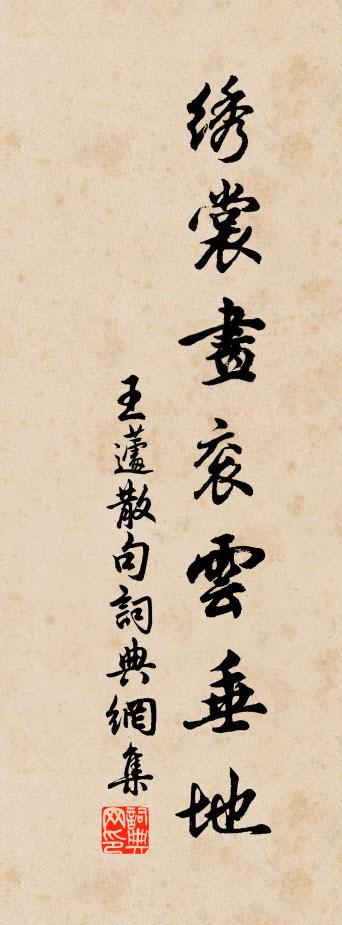 绣裳畫衮雲垂地
王蘧散句詞典網集
詞典
网印